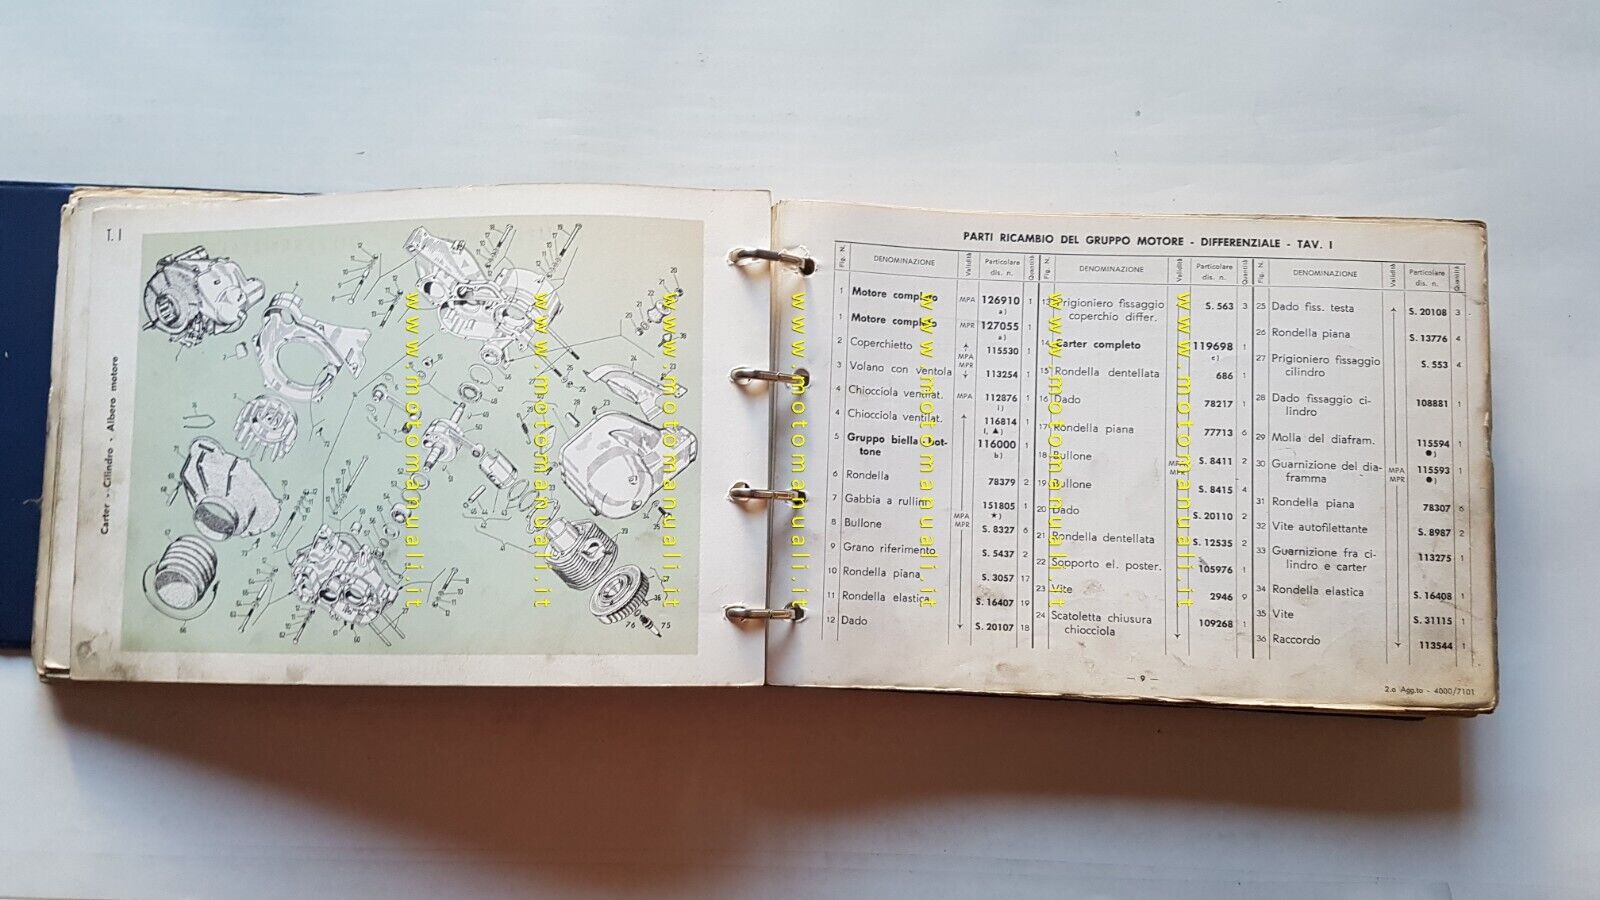 T. I
Carter - Cilindro - Albero motore
PARTI RICAMBIO DEL GRUPPO MOTORE - DIFFERENZIALE - TAV. I
Fig. N. DENOMINAZIONE Validità Particolare dis. n. Quantità
1 Motore completo MPA 126910 a) 1
1 Motore completo MPR 127055 a) 1
2 Coperchietto 115530 1
MPA
MPR
3 Volano con ventola 113254 1
4 Chiocciola ventilat. MPA 112876 l) 1
4 Chiocciola ventilat. 116814 l, ▲) 1
5 Gruppo biella pistone 116000 b) 1
6 Rondella 78379 2
7 Gabbia a rullini 151805 ★) 1
MPA
MPR
8 Bullone S. 8327 6
9 Grano riferimento S. 5437 2
10 Rondella piana S. 3057 17
11 Rondella elastica S. 16407 19
12 Dado S. 20107 18
Fig. N. DENOMINAZIONE Validità Particolare dis. n. Quantità
13 Prigioniero fissaggio coperchio differ. S. 563 3
14 Carter completo 119698 c) 1
15 Rondella dentellata 686 1
16 Dado 78217 1
17 Rondella piana 77713 6
18 Bullone S. 8411 2
MPA
MPR
19 Bullone S. 8415 4
20 Dado S. 20110 2
21 Rondella dentellata S. 12535 2
22 Sopporto el. poster. 105976 1
23 Vite 2946 9
24 Scatoletta chiusura chiocciola 109268 1
Fig. N. DENOMINAZIONE Validità Particolare dis. n. Quantità
25 Dado fiss. testa S. 20108 3
26 Rondella piana S. 13776 4
27 Prigioniero fissaggio cilindro S. 553 4
28 Dado fissaggio cilindro 108881 1
29 Molla del diafram. 115594 ●) 1
30 Guarnizione del diaframma MPA MPR 115593 ●) 1
31 Rondella piana 78307 6
32 Vite autofilettante S. 8987 2
33 Guarnizione fra cilindro e carter 113275 1
34 Rondella elastica S. 16408 1
35 Vite S. 31115 1
36 Raccordo 113544 1
— 9 —
2.o Agg.to - 4000/7101
www.motomanuali.it
www.motomanuali.it
www.motomanuali.it
www.motomanuali.it
www.motomanuali.it
www.motomanuali.it
www.motomanuali.it